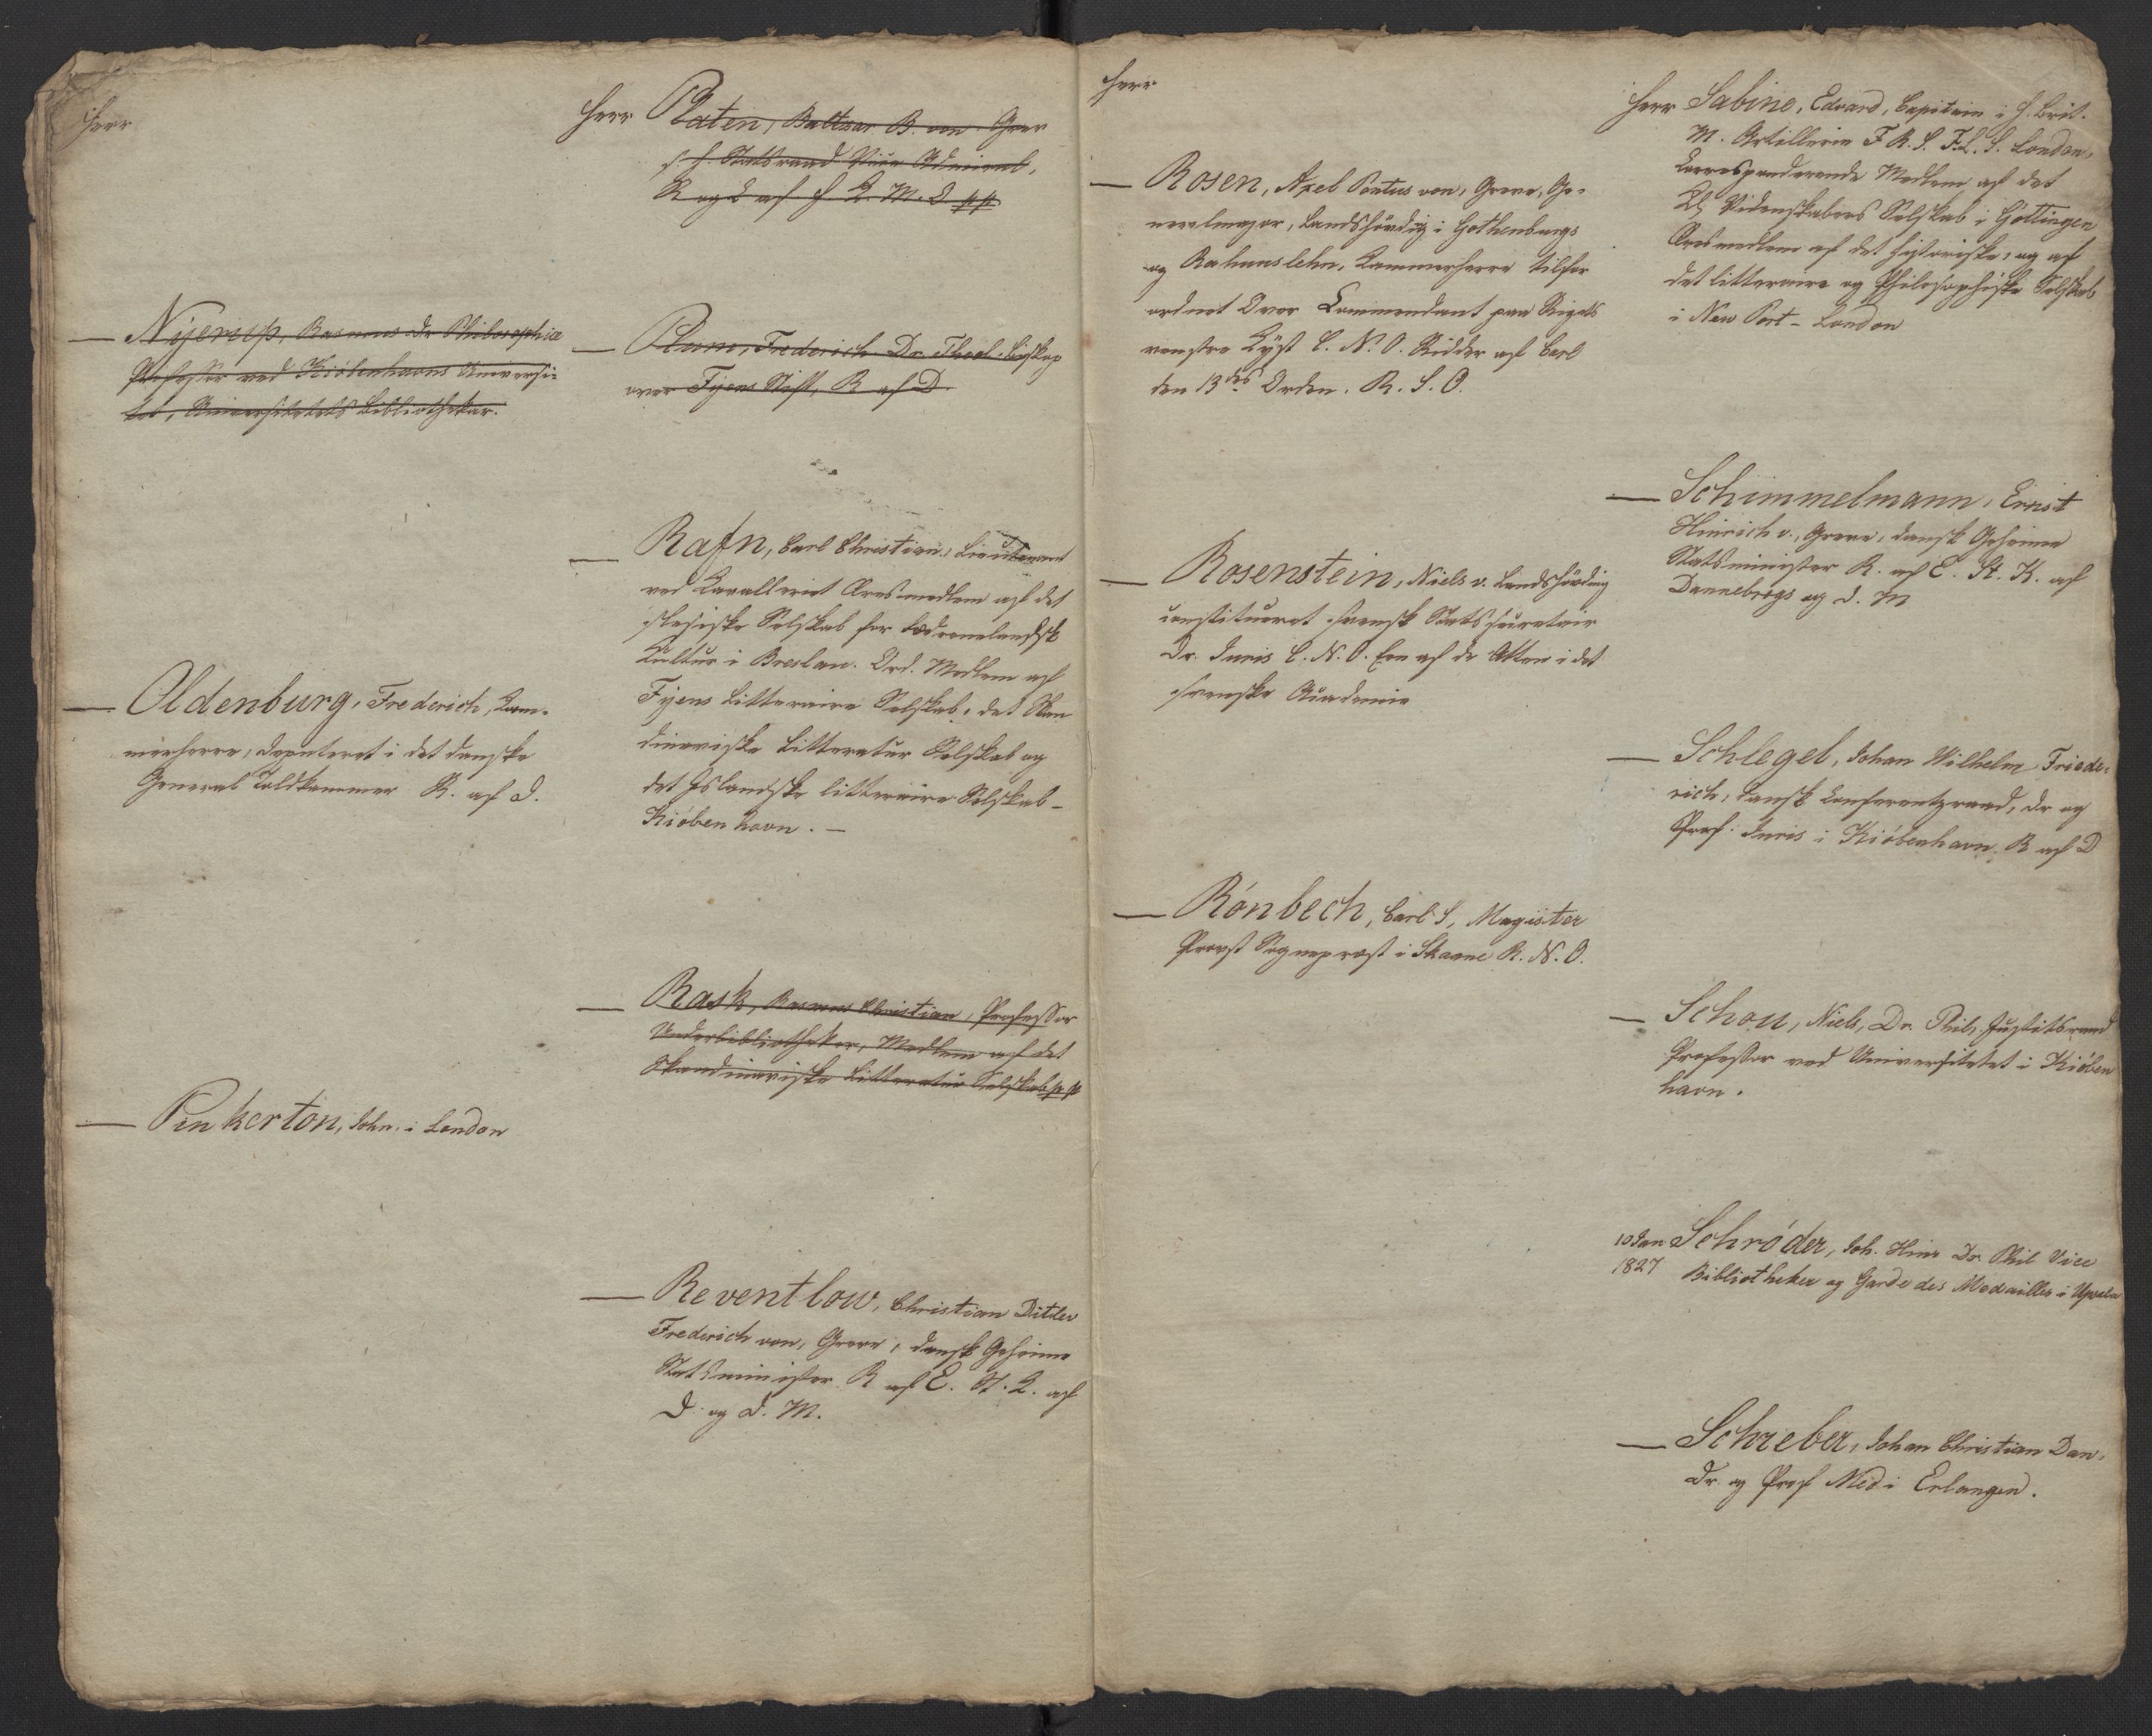 Herr
— Nÿerup, Rasmus Dr Philosophiæ
Professor ved Kiöbenhavns Universi-
tet, Universitetets Bibliothekar.
— Oldenburg, Frederich, Kam-
merherre, Deputeret i det danske
General Toldkammer R. af D.
— Pinkerton, John. i London
Herr Platen, Baltzar B. von Grev
s. H. Statsraad Vice Admiral,
R og C af H. K. M. O pp
— Plum, Frederich Dr. Theol. Biskop
over Fÿens Stift, R af D.
— Rafn, Carl Christian, Lieutenant
ved Cavalleriet Æresmedlem af det
slesiske Selskab for fædrenelandsk
Kultur i Breslau. Ord. Medlem af
Fÿens Litteraire Selskab, det Skan
dinaviske Litteratur Selskab og
det Islandske litteraire Selskab –
Kiöbenhavn. –
— Rask, Rasmus Christian, Professor
Underbibliothekar, Medlem af det
Skandinaviske Litteratur Selskab pp
— Reventlow, Christian Ditlev
Frederich von, Greve, dansk Geheime
Statsminister R af E. St. K. af
D. og D. M.
Herr
— Rosen, Axel Pontus von, Greve, Ge-
neralmajor, Landshövding i Gothenburgs
og Bahuuslehn, Kammerherre tilfor
ordnet Over Commendant paa Rigets
venstre Kÿst C. N. O. Ridder af Carl
den 13des Orden. R. S. O.
— Rosenstein, Niels v. Landshövding
constitueret svensk Statssecretair
Dr. Juris C. N. O. Een af de Atten i det
svenske Academie
— Rönbech, Carl S, Magister
Provst Sognepræst i Skaane R. N. O.
Herr Sabine, Edvard, Capitain i H. Brit.
M. Artillerie F. R. S. F. L. S. London,
Correspondrende Medlem af det
Kl. Videnskabers Selskab i Göttingen
Æresmedlem af det historiske, og af
det litteraire og Philosophiske Selskab
i New Port – London
— Schimmelmann, Ernst
Hinrich v., Greve, dansk Geheime
Statsminister R. af E. St. K. af
Dannebrogs og D. M
— Schlegel, Johan Wilhelm Friede-
rich, dansk Conferentzraad, Dr og
Prof. Juris i Kiöbenhavn. R af D
— Schou, Niels, Dr. Phil. Justitsraad
Professor ved Universitetet i Kiöben
havn.
10 Jan 1827 Schröder, Joh. Hinr Dr. Phil Vice
Bibliotheker og Garde des Medailles i Upsala
— Schreber, Johan Christian Dan.
Dr. og Prof Med i Erlangen.